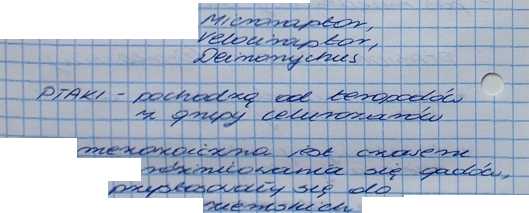 Microraptor,
Velociraptor,
Deinonychus
PTAKI - pochodzą od teropodów
z grupy celurozaurów
mezozoiczna jest czasem
różnicowania się gadów,
przystosowały się do